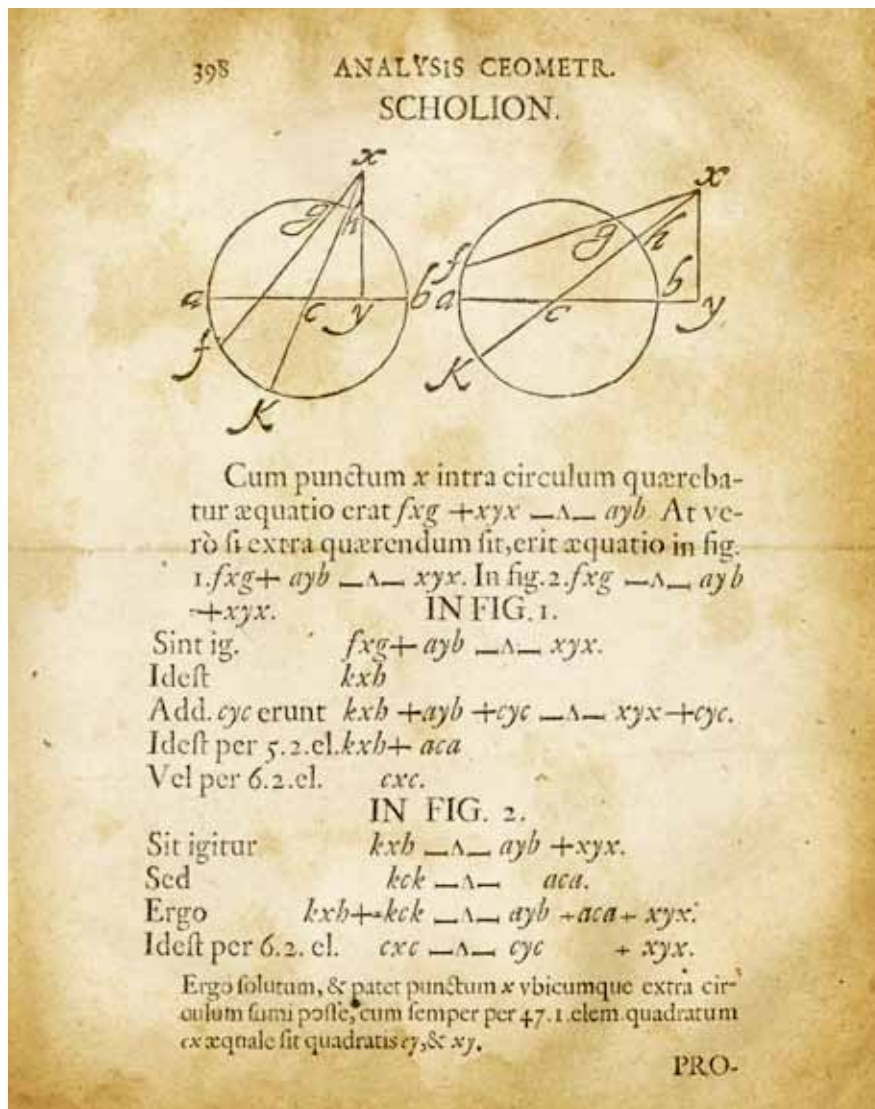 398 ANALYSIS CEOMETR.
SCHOLION.
x x
g h g h
f b
a c y b a c y
f K
K
Cum punctum x intra circulum quæreba-
tur æquatio erat fxg +xyx —ʌ— ayb At ve-
rò ſi extra quærendum ſit, erit æquatio in fig.
1. fxg+ ayb —ʌ— xyx. In fig. 2. fxg —ʌ— ayb
+xyx. IN FIG. 1.
Sint ig. fxg+ ayb —ʌ— xyx.
Ideſt kxh
Add. cyc erunt kxh +ayb +cyc —ʌ— xyx+cyc.
Ideſt per 5.2.el. kxh+ aca
Vel per 6.2.el. cxc.
IN FIG. 2.
Sit igitur kxh —ʌ— ayb +xyx.
Sed kck —ʌ— aca.
Ergo kxh+kck —ʌ— ayb +aca+ xyx.
Ideſt per 6.2. el. cxc —ʌ— cyc + xyx.
Ergo ſolutum, & patet punctum x vbicumque extra cir-
culum ſumi poſſe, cum ſemper per 47.1.elem quadratum
cx æquale ſit quadratis cy, & xy.
PRO-